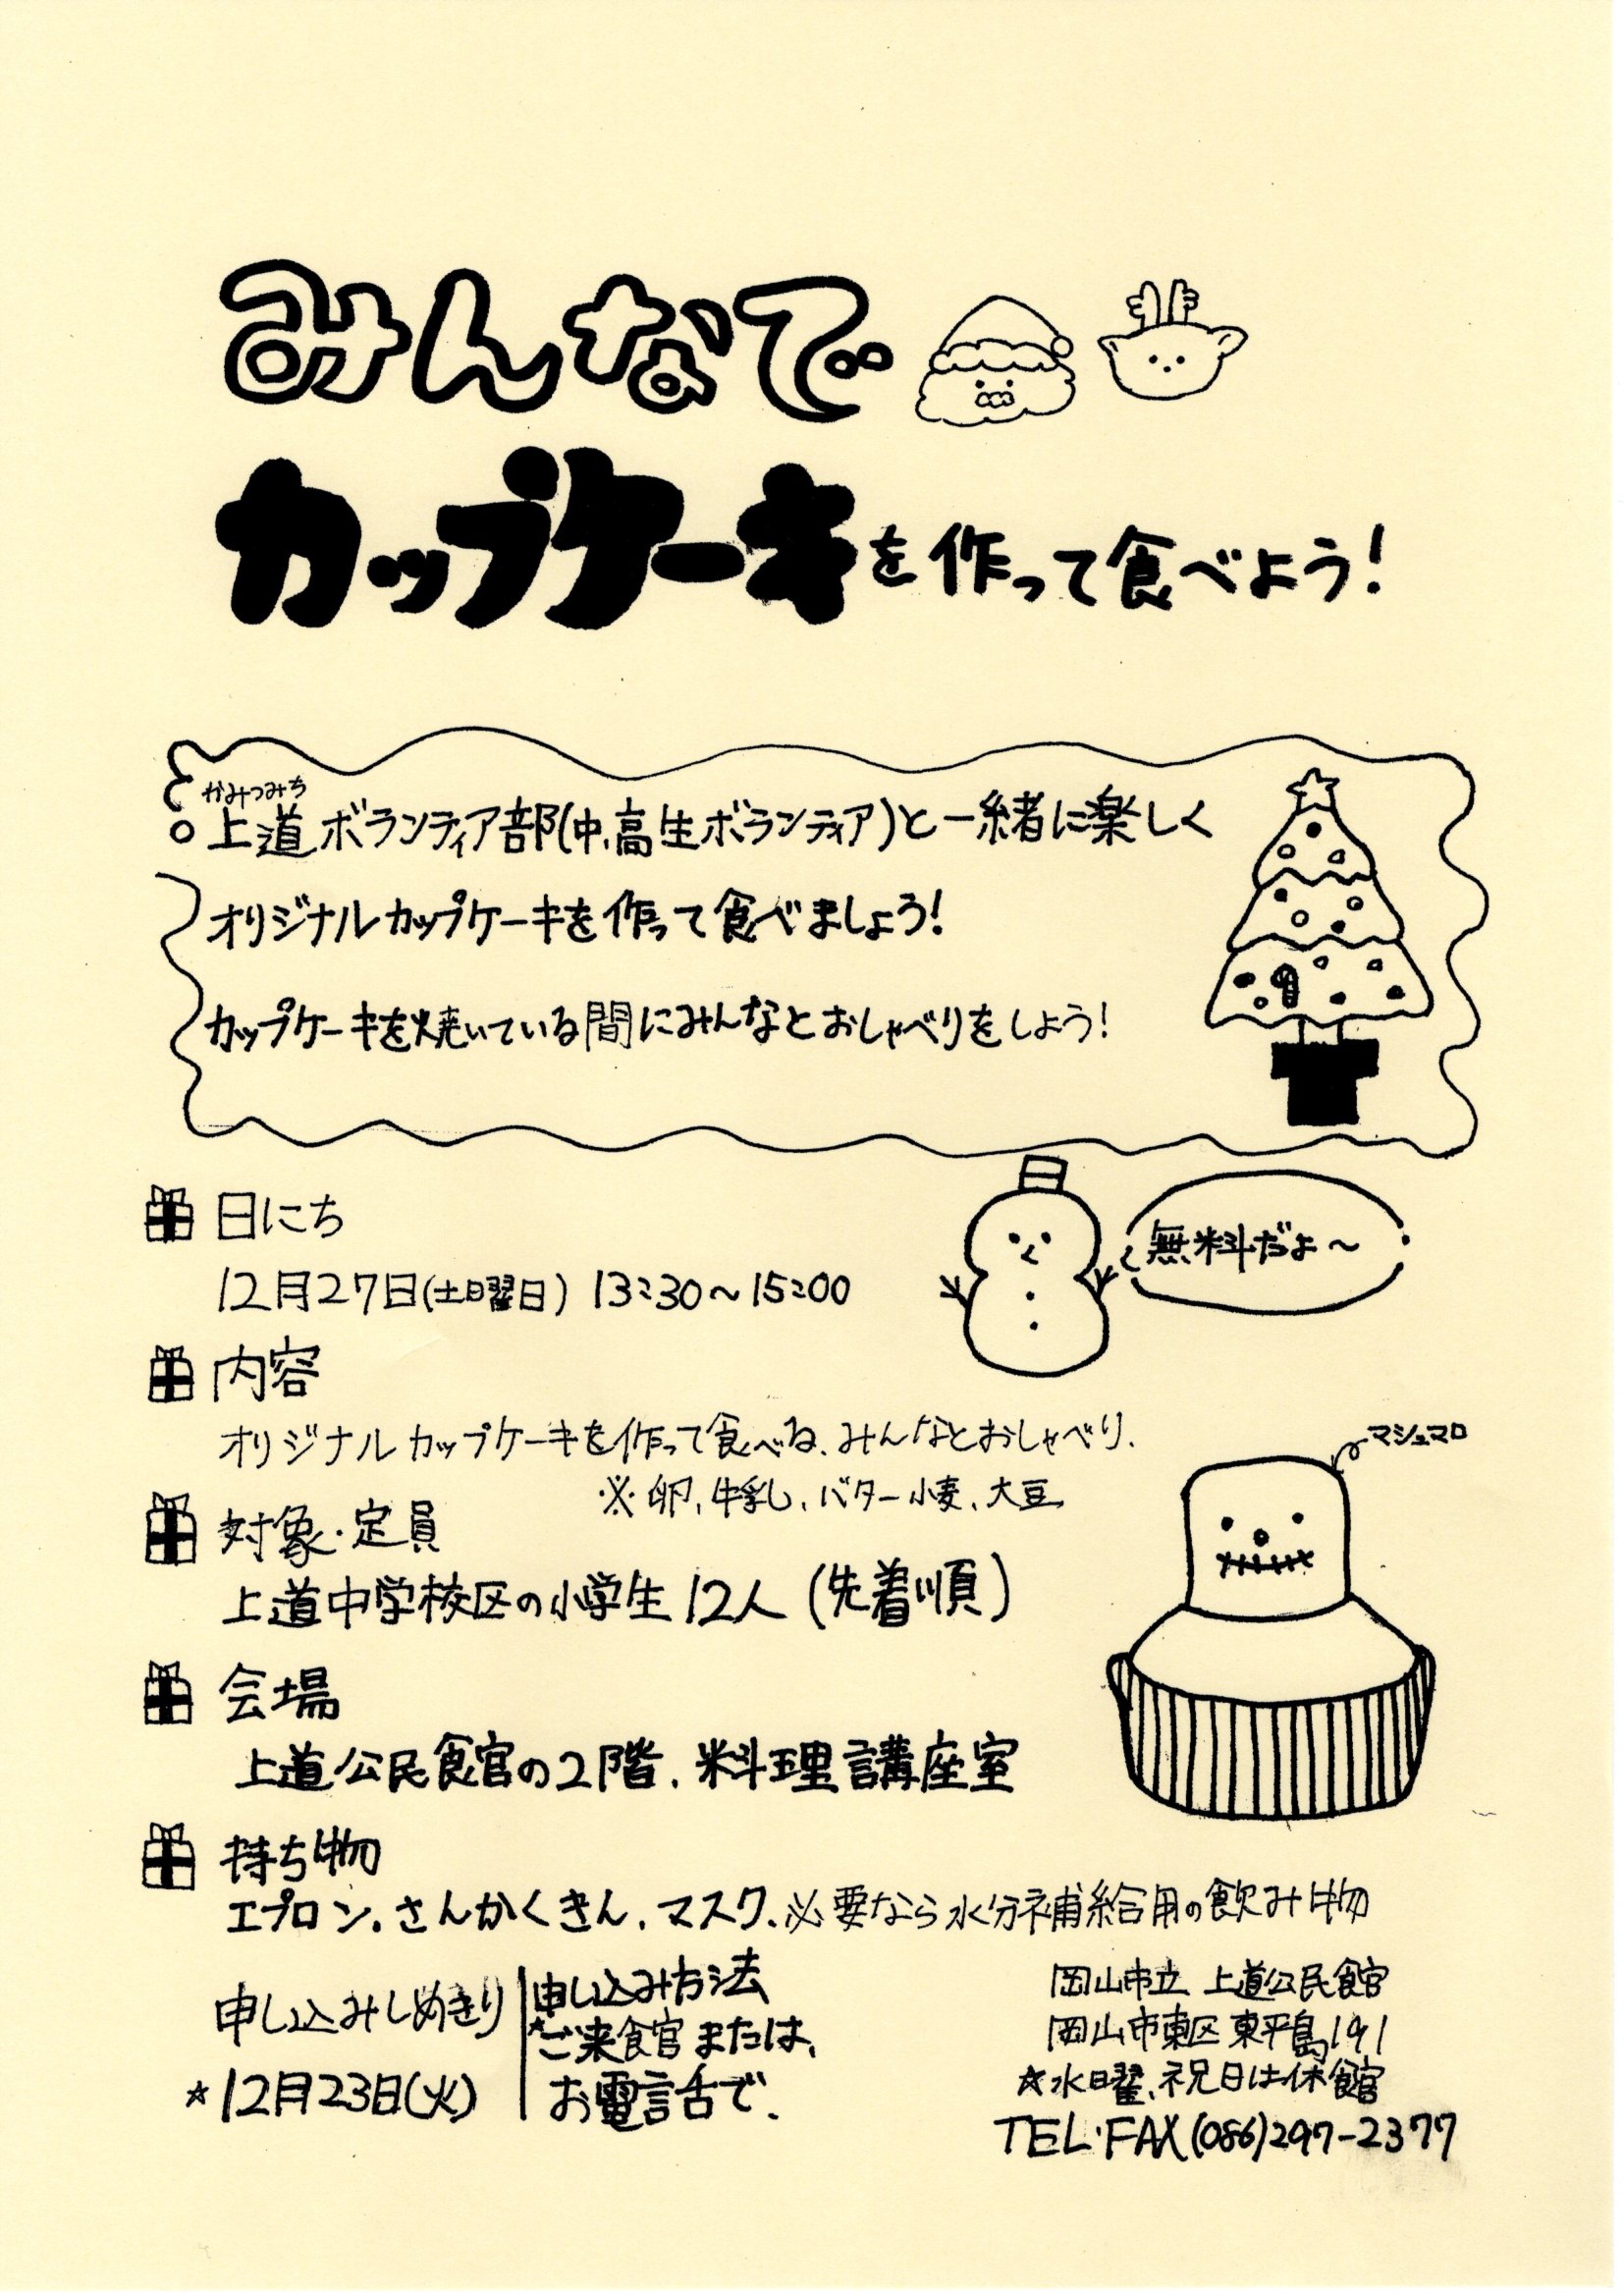 みんなで
カップケーキを作って食べよう!
かみつみち
上道ボランティア部(中、高生ボランティア)と一緒に楽しく
オリジナルカップケーキを作って食べましょう!
カップケーキを焼いている間にみんなとおしゃべりをしよう!
日にち
無料だよ～
12月27日(土曜日) 13:30～15:00
内容
オリジナルカップケーキを作って食べる、みんなとおしゃべり、
マシュマロ
※卵、牛乳、バター小麦、大豆
対象・定員
上道中学校区の小学生12人(先着順)
会場
上道公民館の2階、料理講座室
持ち物
エプロン、さんかくきん、マスク、必要なら水分補給用の飲み物
申し込みしめきり
☆12月23日(火)
申し込み方法
☆ご来館または、
お電話で、
岡山市立 上道公民館
岡山市東区東平島191
☆水曜、祝日は休館
TEL・FAX(086)297-2377